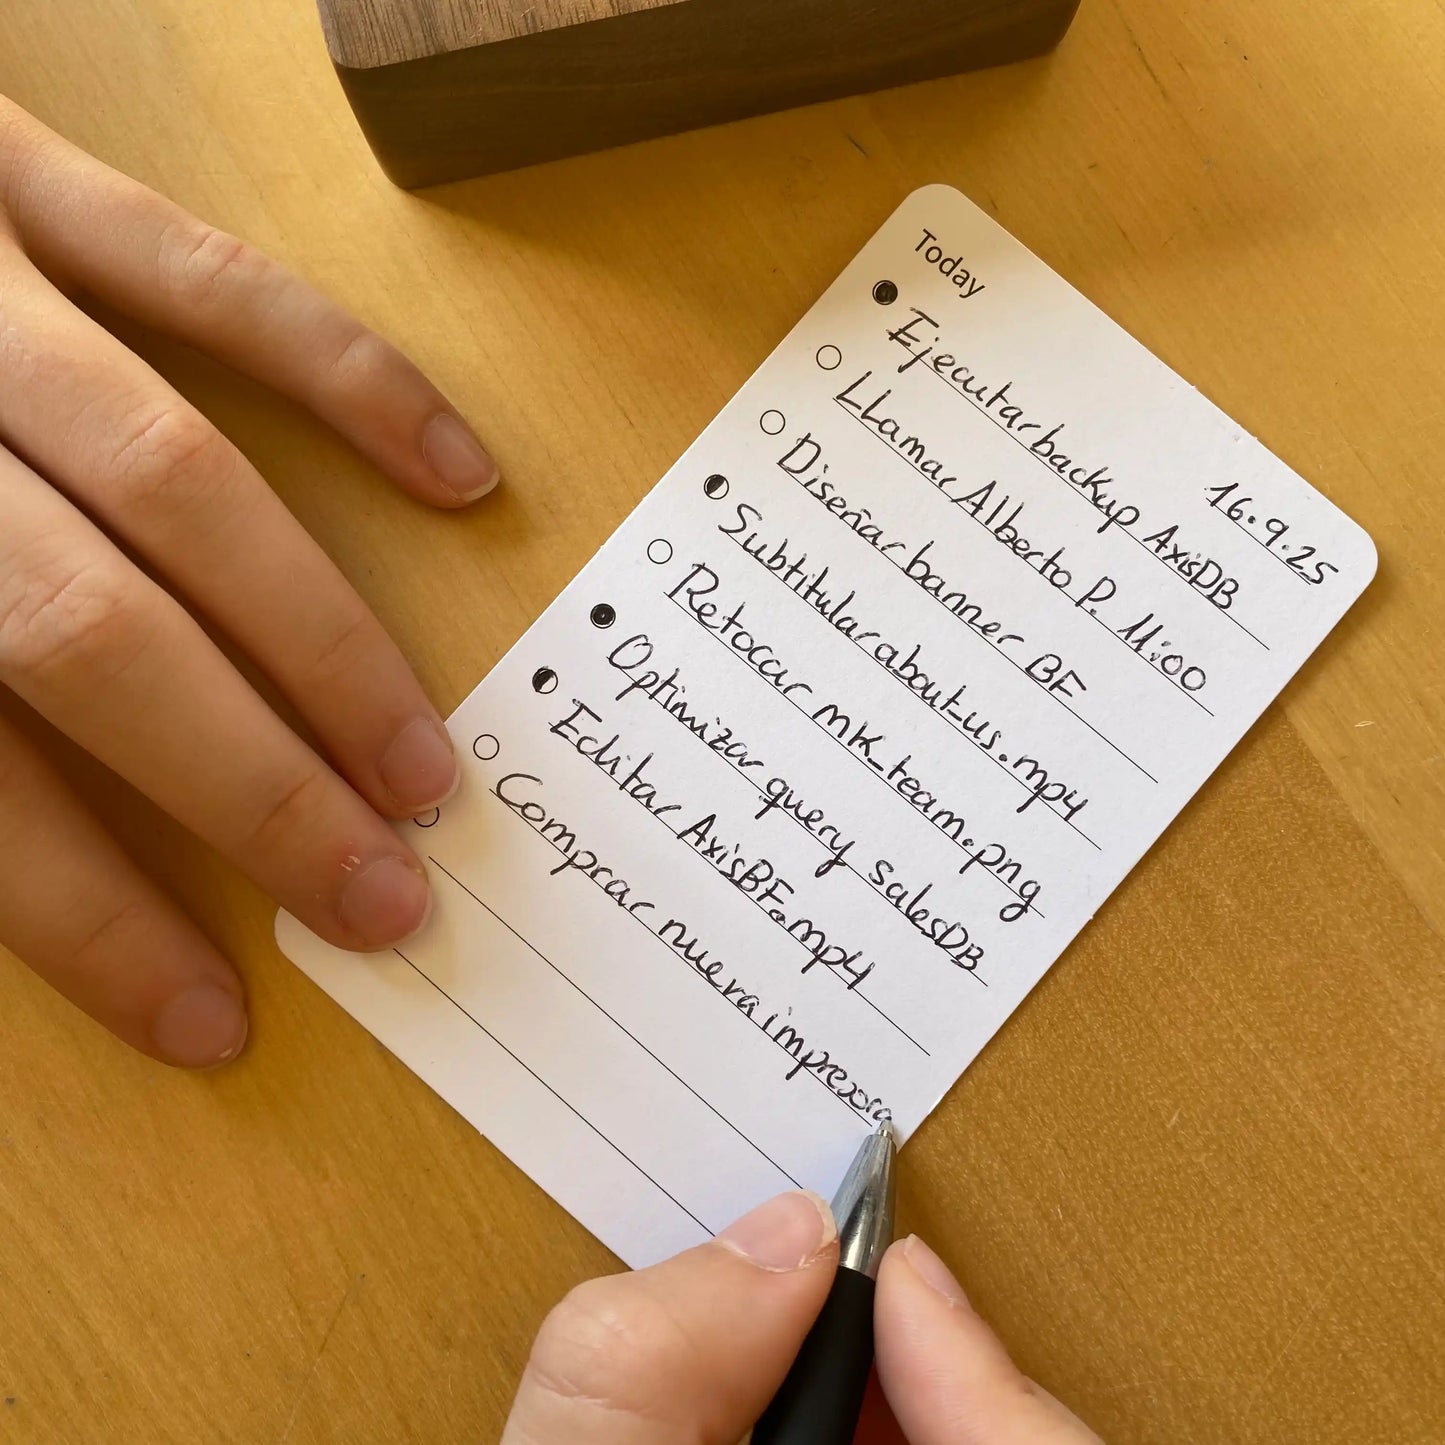 Today
16.9.25
Ejecutar backup AxisDB
LLamar Alberto P. 11:00
Diseñar banner BF
Subtitular about_us.mp4
Retocar mk_team.png
Optimizar query salesDB
Editar AxisBF.mp4
Comprar nueva impresora